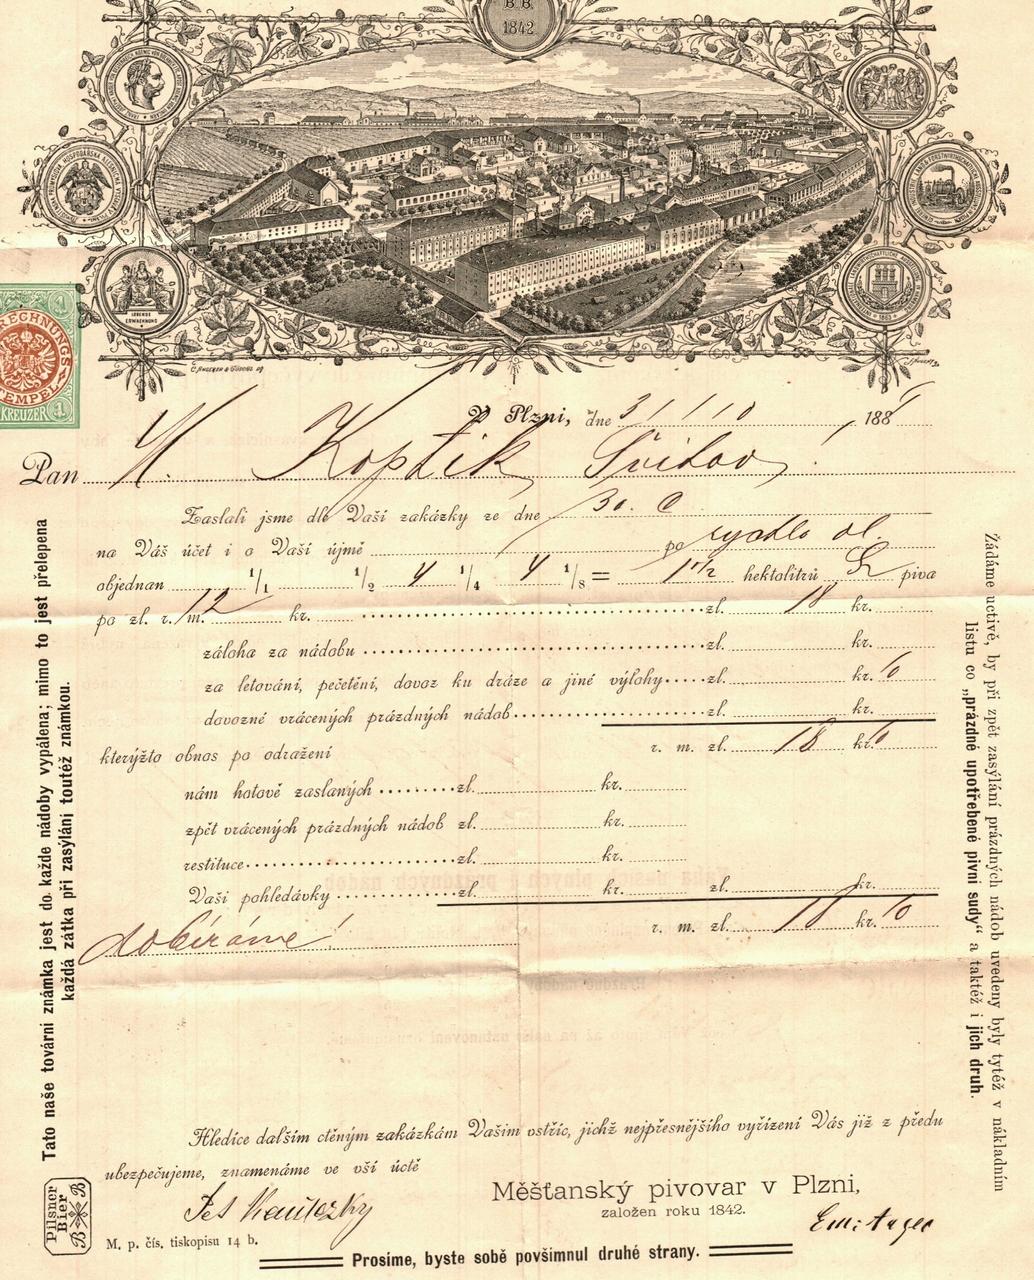 B. B.
1842.
LOBENDE
ERWAEHNUNG
1863
RECHNUNGS
STEMPEL
1 KREUZER 1
V Plzni, dne 31/10 188
Pan M. Koptik, Svitav
Zaslali jsme dle Vaší zakázky ze dne 30.
na Váš účet i o Vaší újmě po rychlo
objednan 1/1 1/2 4 1/4 4 1/8 = 1 1/2 hektolitrů piva
po zl. r. m. 12 kr. zl. 18 kr.
záloha za nádobu zl. kr.
za letování, pečetění, dovoz ku dráze a jiné výlohy zl. kr. 10
dovozné vrácených prázdných nádob zl. kr.
kterýžto obnos po odražení r. m. zl. 18 kr. 10
nám hotově zaslaných zl. kr.
zpět vrácených prázdných nádob zl. kr.
restituce zl. kr.
Vaši pohledávky zl. kr. zl. kr.
dobíráme! r. m. zl. 18 kr. 10
Hledíce dalším ctěným zakázkám Vašim vstříc, jichž nejpřesnějšího vyřízení Vás již z předu
ubezpečujeme, znamenáme ve vší úctě
Měšťanský pivovar v Plzni,
založen roku 1842.
M. p. čís. tiskopisu 14 b.
Prosíme, byste sobě povšimnul druhé strany.
Pilsner
Bier
B B
Tato naše tovární známka jest do každe nádoby vypálena; mimo to jest přelepena
každá zátka při zasýláni toutéž známkou.
Žádáme uctivě, by při zpět zasýlání prázdných nádob uvedeny byly tytéž v nákladním
listu co „prázdné upotřebené pivní sudy“ a taktéž i jich druh.